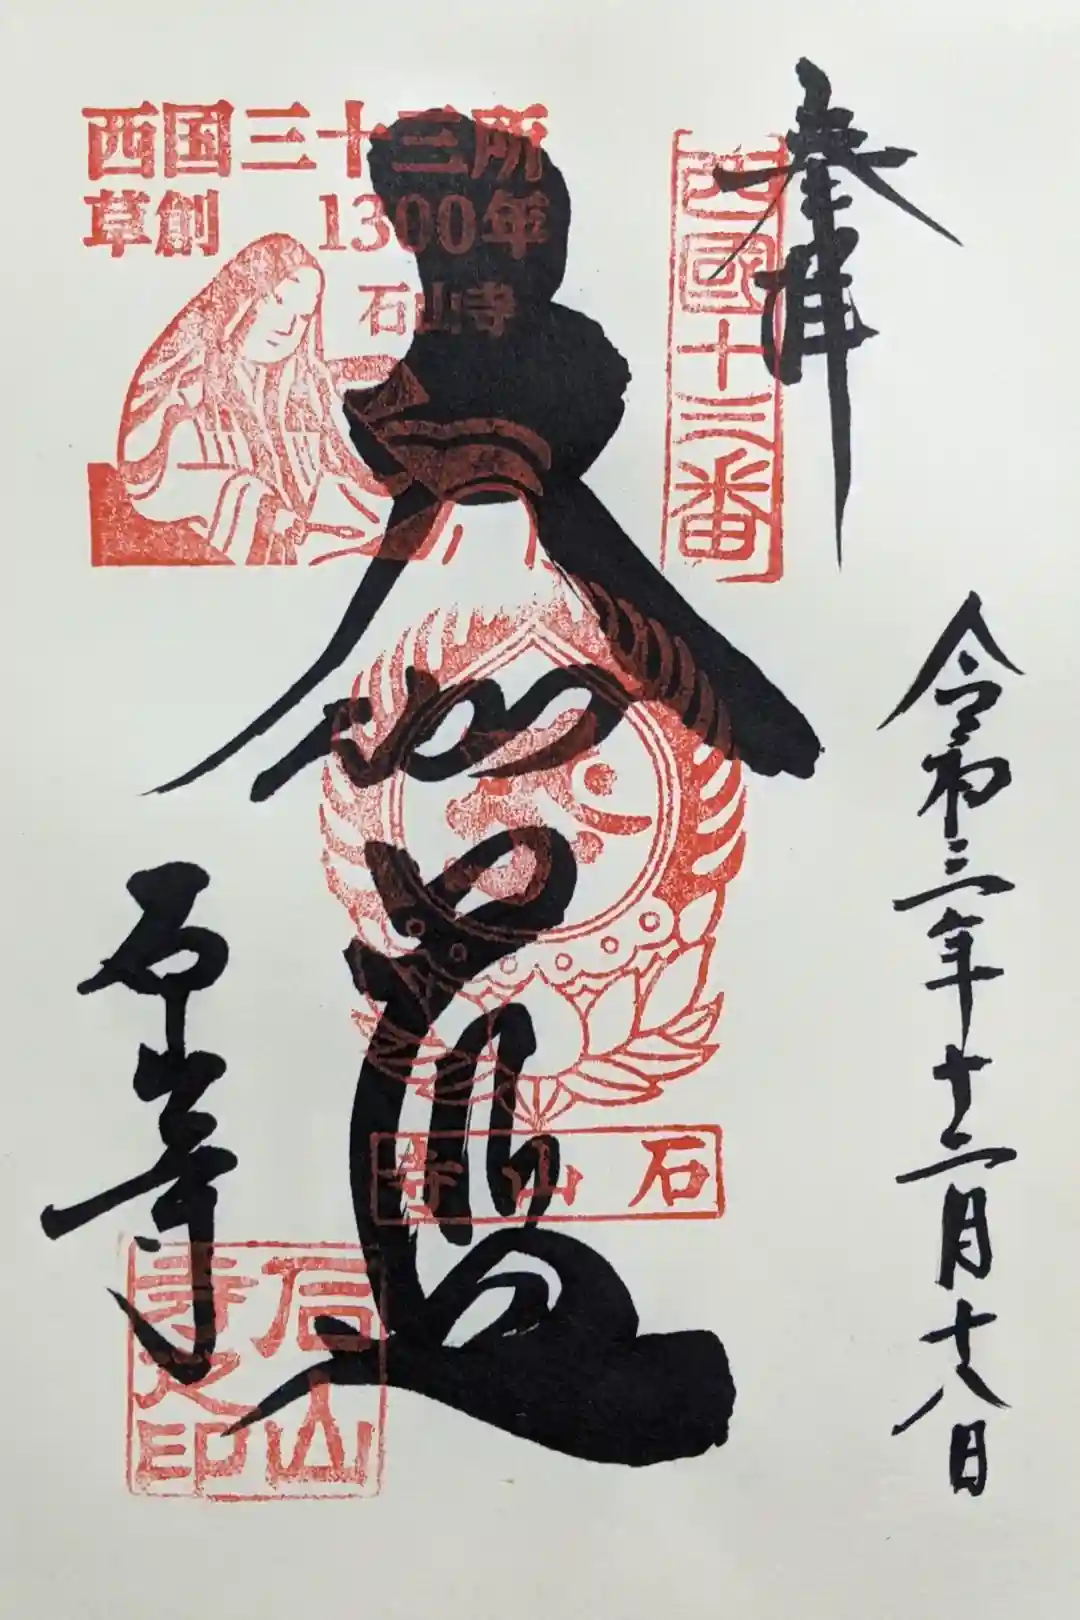 奉拝
西國十三番
令和三年十二月十八日
西国三十三所
草創 1300年
石山寺
大伽藍
石山寺
石山寺
石山寺之印